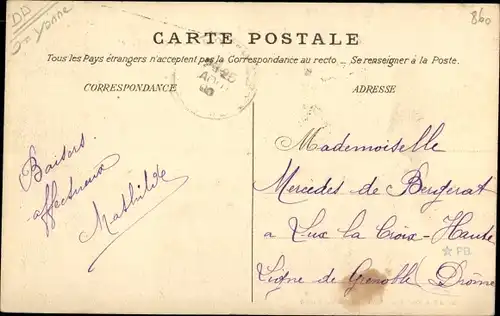 DD
en Yonne
860
CARTE POSTALE
Tous les Pays étrangers n'acceptent pas la Correspondance au recto. — Se renseigner à la Poste.
CORRESPONDANCE
ADRESSE
Baisers
affectueux
Mathilde
Mademoiselle
Mercedes de
a Lux la Croix-Haute
Ligne de Grenoble Drôme